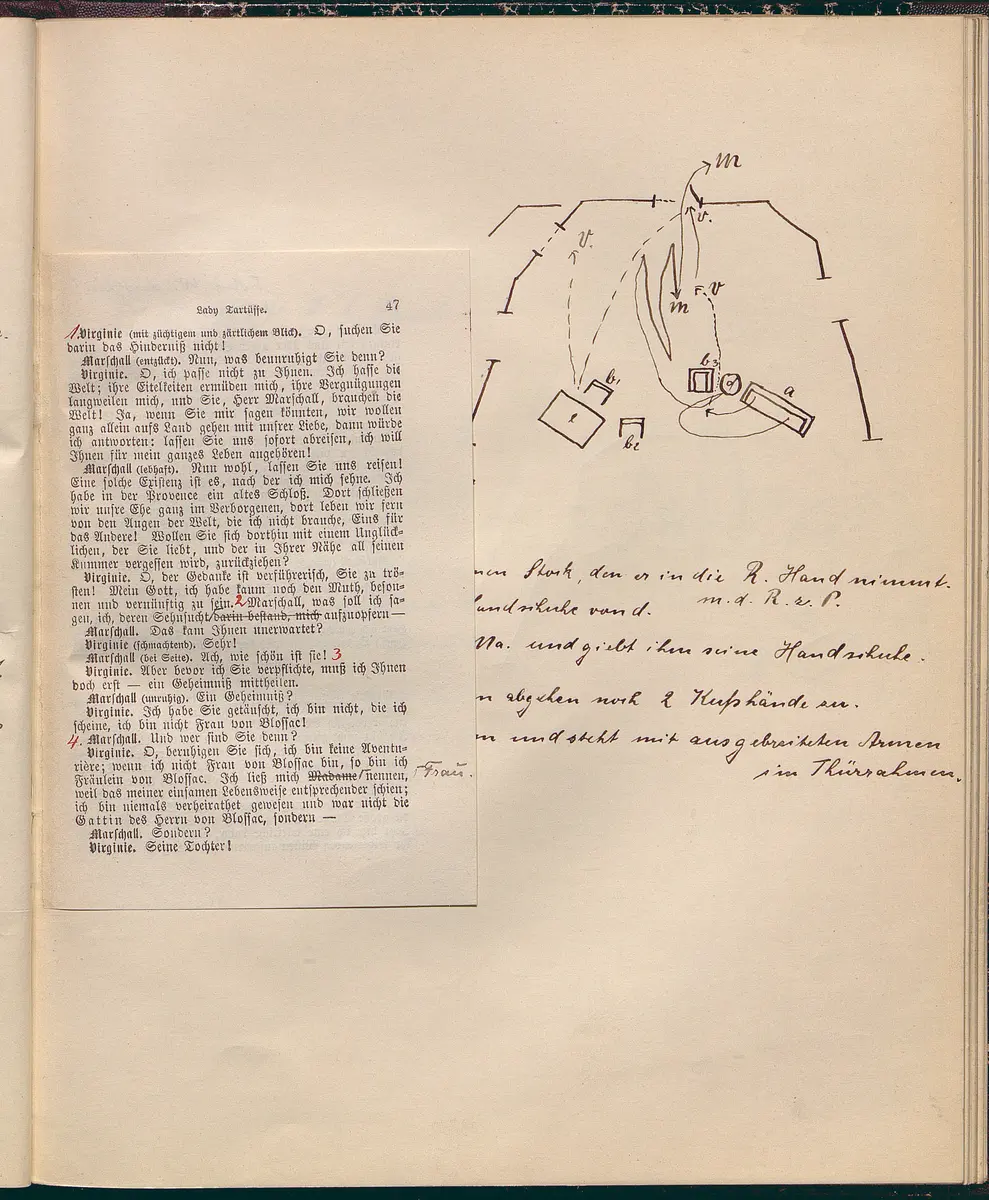 Lady Tartüffe. 47
1. Virginie (mit züchtigem und zärtlichem Blick). O, suchen Sie
darin das Hinderniß nicht!
Marschall (entzückt). Nun, was beunruhigt Sie denn?
Virginie. O, ich passe nicht zu Ihnen. Ich hasse die
Welt; ihre Eitelkeiten ermüden mich, ihre Vergnügungen
langweilen mich, und Sie, Herr Marschall, brauchen die
Welt! Ja, wenn Sie mir sagen könnten, wir wollen
ganz allein aufs Land gehen mit unsrer Liebe, dann würde
ich antworten: lassen Sie uns sofort abreisen, ich will
Ihnen für mein ganzes Leben angehören!
Marschall (lebhaft). Nun wohl, lassen Sie uns reisen!
Eine solche Existenz ist es, nach der ich mich sehne. Ich
habe in der Provence ein altes Schloß. Dort schließen
wir unsre Ehe ganz im Verborgenen, dort leben wir fern
von den Augen der Welt, die ich nicht brauche, Eins für
das Andere! Wollen Sie sich dorthin mit einem Unglück-
lichen, der Sie liebt, und der in Ihrer Nähe all seinen
Kummer vergessen wird, zurückziehen?
Virginie. O, der Gedanke ist verführerisch, Sie zu trö-
sten! Mein Gott, ich habe kaum noch den Muth, beson-
nen und vernünftig zu sein. 2 Marschall, was soll ich sa-
gen, ich, deren Sehnsucht darin bestand, mich aufzuopfern —
Marschall. Das kam Ihnen unerwartet?
Virginie (schmachtend). Sehr!
Marschall (bei Seite). Ach, wie schön ist sie! 3
Virginie. Aber bevor ich Sie verpflichte, muß ich Ihnen
doch erst — ein Geheimniß mittheilen.
Marschall (unruhig). Ein Geheimniß?
Virginie. Ich habe Sie getäuscht, ich bin nicht, die ich
scheine, ich bin nicht Frau von Blossac!
4. Marschall. Und wer sind Sie denn?
Virginie. O, beruhigen Sie sich, ich bin keine Aventu-
rière; wenn ich nicht Frau von Blossac bin, so bin ich
Fräulein von Blossac. Ich ließ mich Madame nennen, Frau.
weil das meiner einsamen Lebensweise entsprechender schien;
ich bin niemals verheirathet gewesen und war nicht die
Gattin des Herrn von Blossac, sondern —
Marschall. Sondern?
Virginie. Seine Tochter!
m
v.
v.
v
m
b1
b2
b3
d
a
nen Stock, den er in die R. Hand nimmt.
m. d. R. z. P.
andschuhe von d.
Ma. und giebt ihm seine Handschuhe.
n abgehen noch 2 Kußhände zu.
n und steht mit ausgebreiteten Armen
im Thürrahmen.